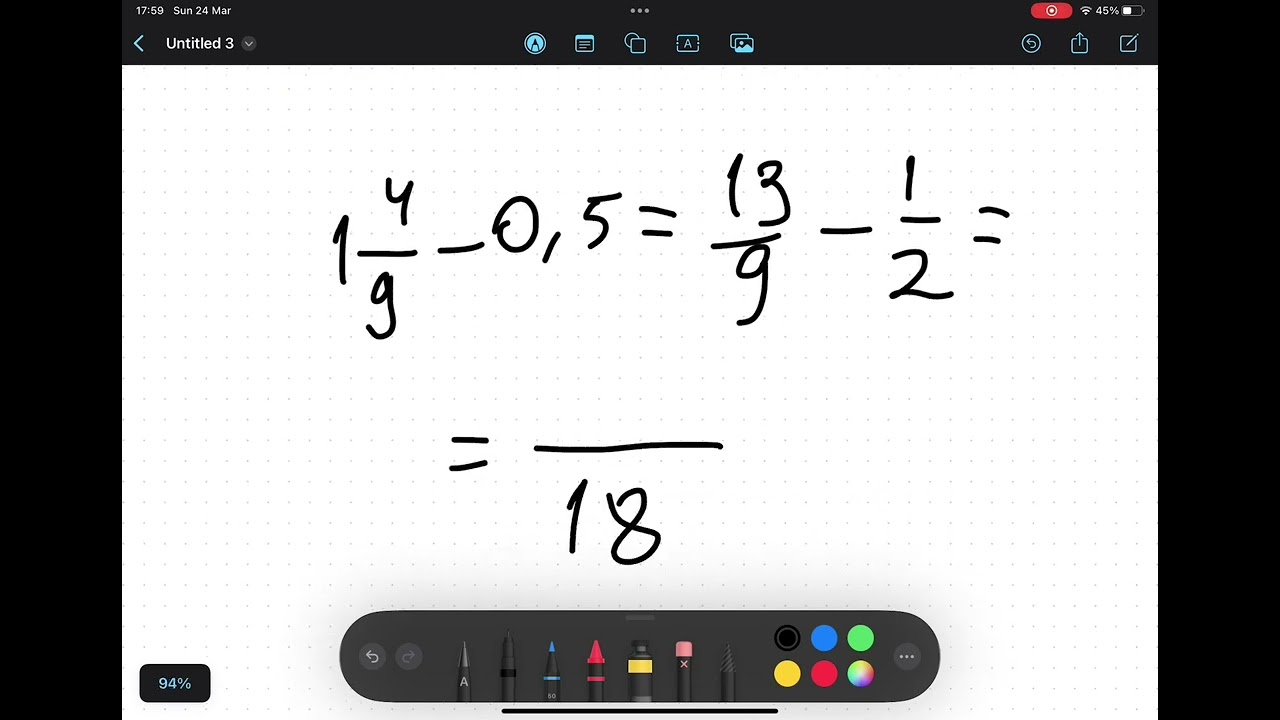 17:59 Sun 24 Mar 45%
Untitled 3
1 4/9 - 0,5 = 13/9 - 1/2 =
= /18
A 50
94%